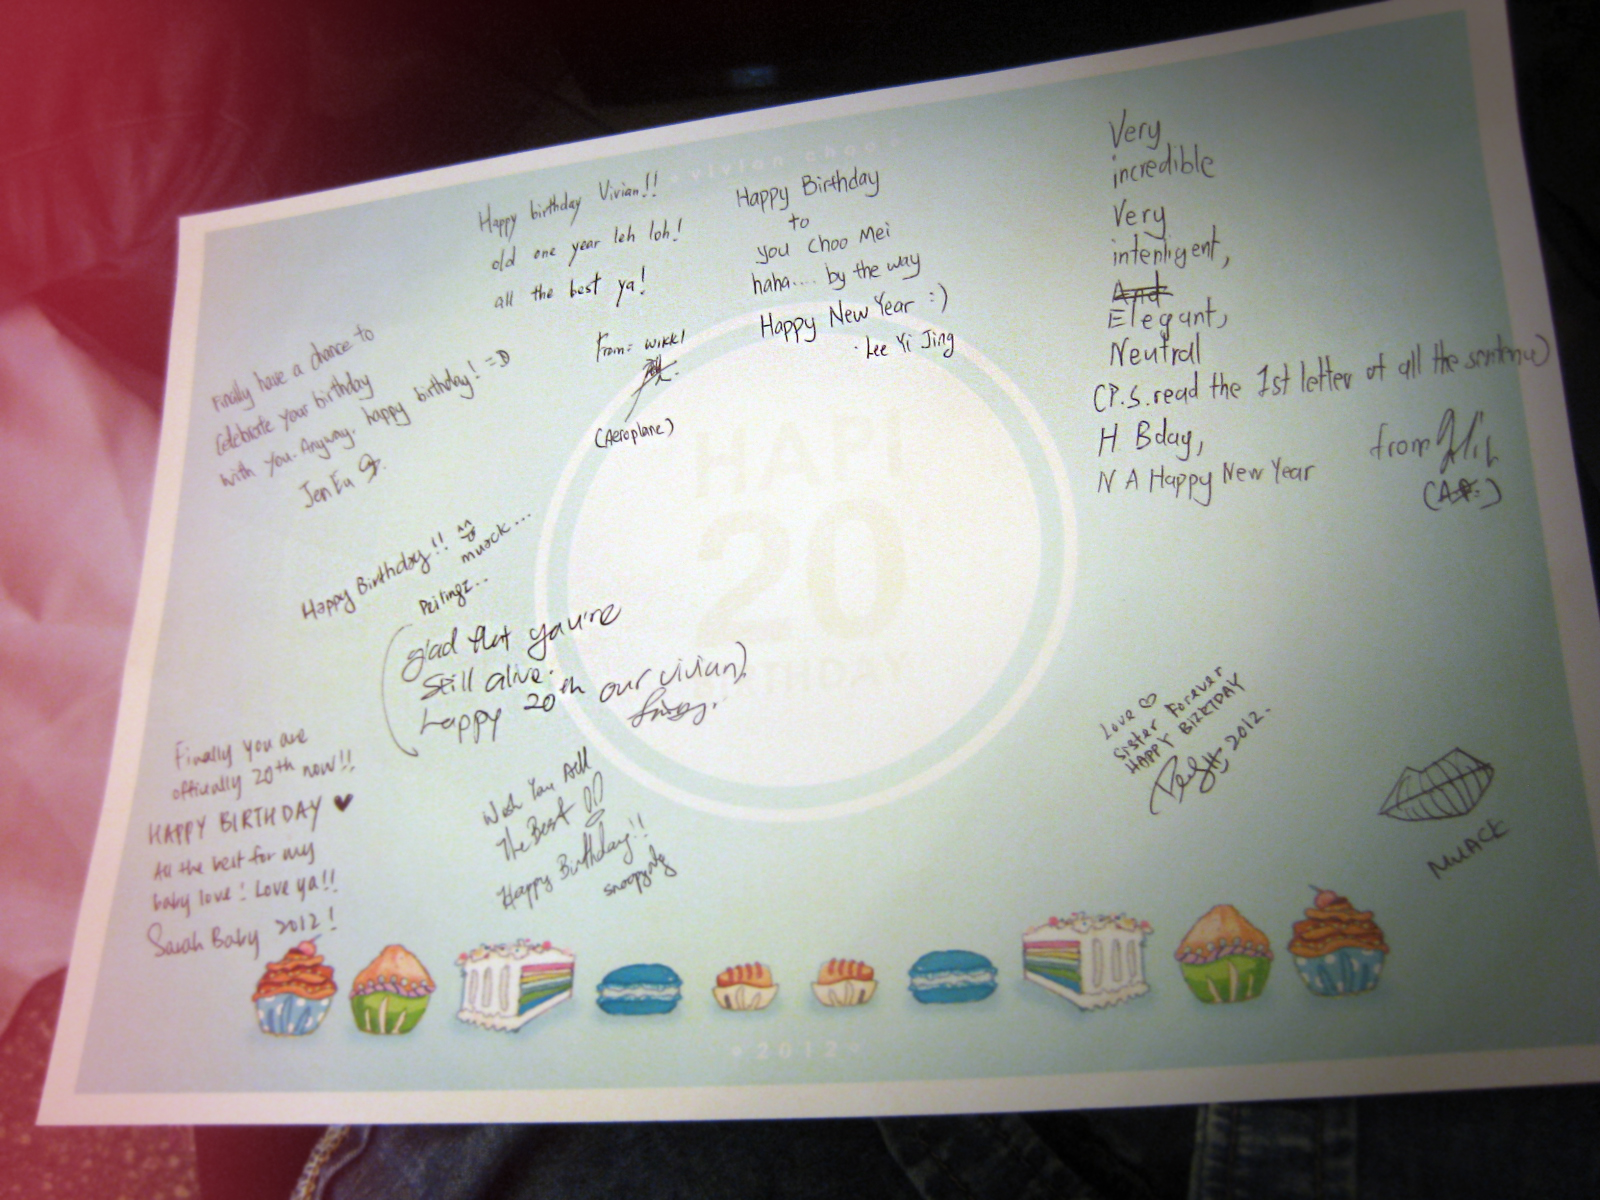 vivian choo
Happy birthday Vivian!!
old one year leh loh!
all the best ya!
From: wikkl
(Aeroplane)
Happy Birthday
to
you Choo Mei
haha.... by the way
Happy New Year :)
- Lee Yi Jing
Very
incredible
Very
intenligent,
And
Elegant,
Neutral
(P.S. read the 1st letter of all the sentence)
H Bday,
N A Happy New Year
from
Finally have a chance to
celebrate your birthday
with you. Anyway, happy birthday! =D
Jen Eu
Happy Birthday!! ^^
muack...
Peilingz..
(glad that you're
still alive.
happy 20th our vivian).
HAPI
20
BIRTHDAY
Finally you are
officially 20th now!!
HAPPY BIRTHDAY ♥
All the best for my
baby love! Love ya!!
Sarah Baby 2012!
Wish You All
The Best
Happy Birthday!!
Love ♡
Sister Forever
HAPPY BIRTDAY
2012.
MUACK
2012